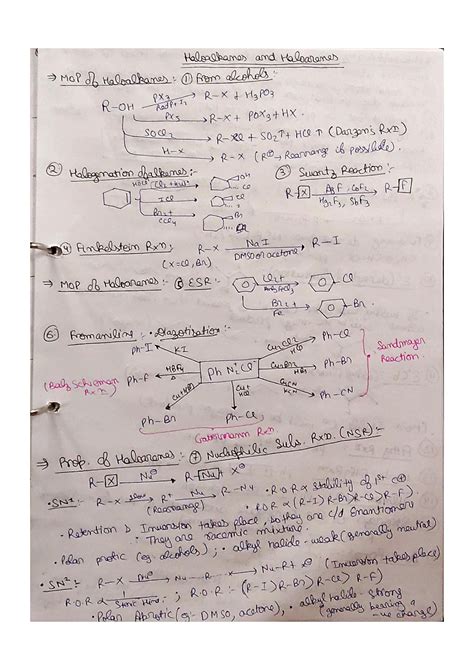 Haloalkanes and Haloarenes
⇒ MOP of Haloalkanes :- ① From alcohols :-
R-OH PX3 Red P + X2 → R-X + H3PO3
PX5 → R-X + POX3 + HX
SOCl2 → R-Cl + SO2↑ + HCl↑ (Darzen's RxN)
H-X → R-X (R⊕ → Rearrange if possible)
② Halogenation of alkenes :- ③ Swartz Reaction :-
Cl2 + H2O OH Cl
ICl I Cl
Br2 + CCl4 Br Br
R-X AgF, CoF2 Hg2F2, SbF3 → R-F
④ Finkelstein RxN :- R-X NaI DMSO or acetone → R-I
(X=Cl, Br)
⇒ MOP of Haloarenes :- ⑤ ESR :- Cl2 + → Cl
Br2 + Fe → Br
⑥ From aniline :- • Diazotization :-
Ph-I KI Cu2Cl2 HCl Ph-Cl
Ph-F HBF4 Δ Ph N2+Cl- HBr Ph-Br
(Balz Schieman RxN) CuCN KCN Ph-CN
Sandmayer Reaction
Cu + HBr Cu + HCl
Ph-Br Ph-Cl
Gattermann RxN
⇒ Prop. of Haloarenes :- ⑦ Nucleophilic Subs. RxN. (NSR) :-
R-X Nu⊖ → R-Nu + X⊖
• SN1 :- R-X slow → R+ Nu → R-Nu • R.O.R ∝ Stability of 1st C⊕
(Rearrange) • R.O.R ∝ (R-I) R-Br) R-Cl) R-F)
• Retention & Inversion takes place, so they are c/d Enantiomers
• They are racemic mixture.
• Polar protic (eg- alcohols) ; • alkyl halide - weak (generally neutral)
• SN2 :- R-X → Nu---R---X → Nu-R + X⊖ (Inversion takes place)
R.O.R ∝ 1/Steric Hind. ; R.O.R :- (R-I) R-Br) R-Cl) R-F)
• Polar Aprotic (eg:- DMSO, acetone), • alkyl halide - Strong
(generally bearing a -ve charge)